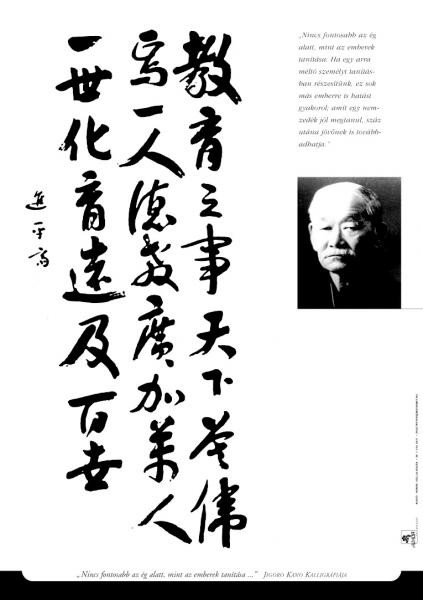 教育之事天下莫偉
焉一人徳教廣加萬人
一世化育遠及百世
進乎斎
„Nincs fontosabb az ég
alatt, mint az emberek
tanítása. Ha egy arra
méltó személyt tanítás-
ban részesítünk, ez sok
más emberre is hatást
gyakorol; amit egy nem-
zedék jól megtanul, száz
utána jövőnek is tovább-
adhatja.”
„Nincs fontosabb az ég alatt, mint az emberek tanítása ...” JIGORO KANO KALLIGRÁFIÁJA